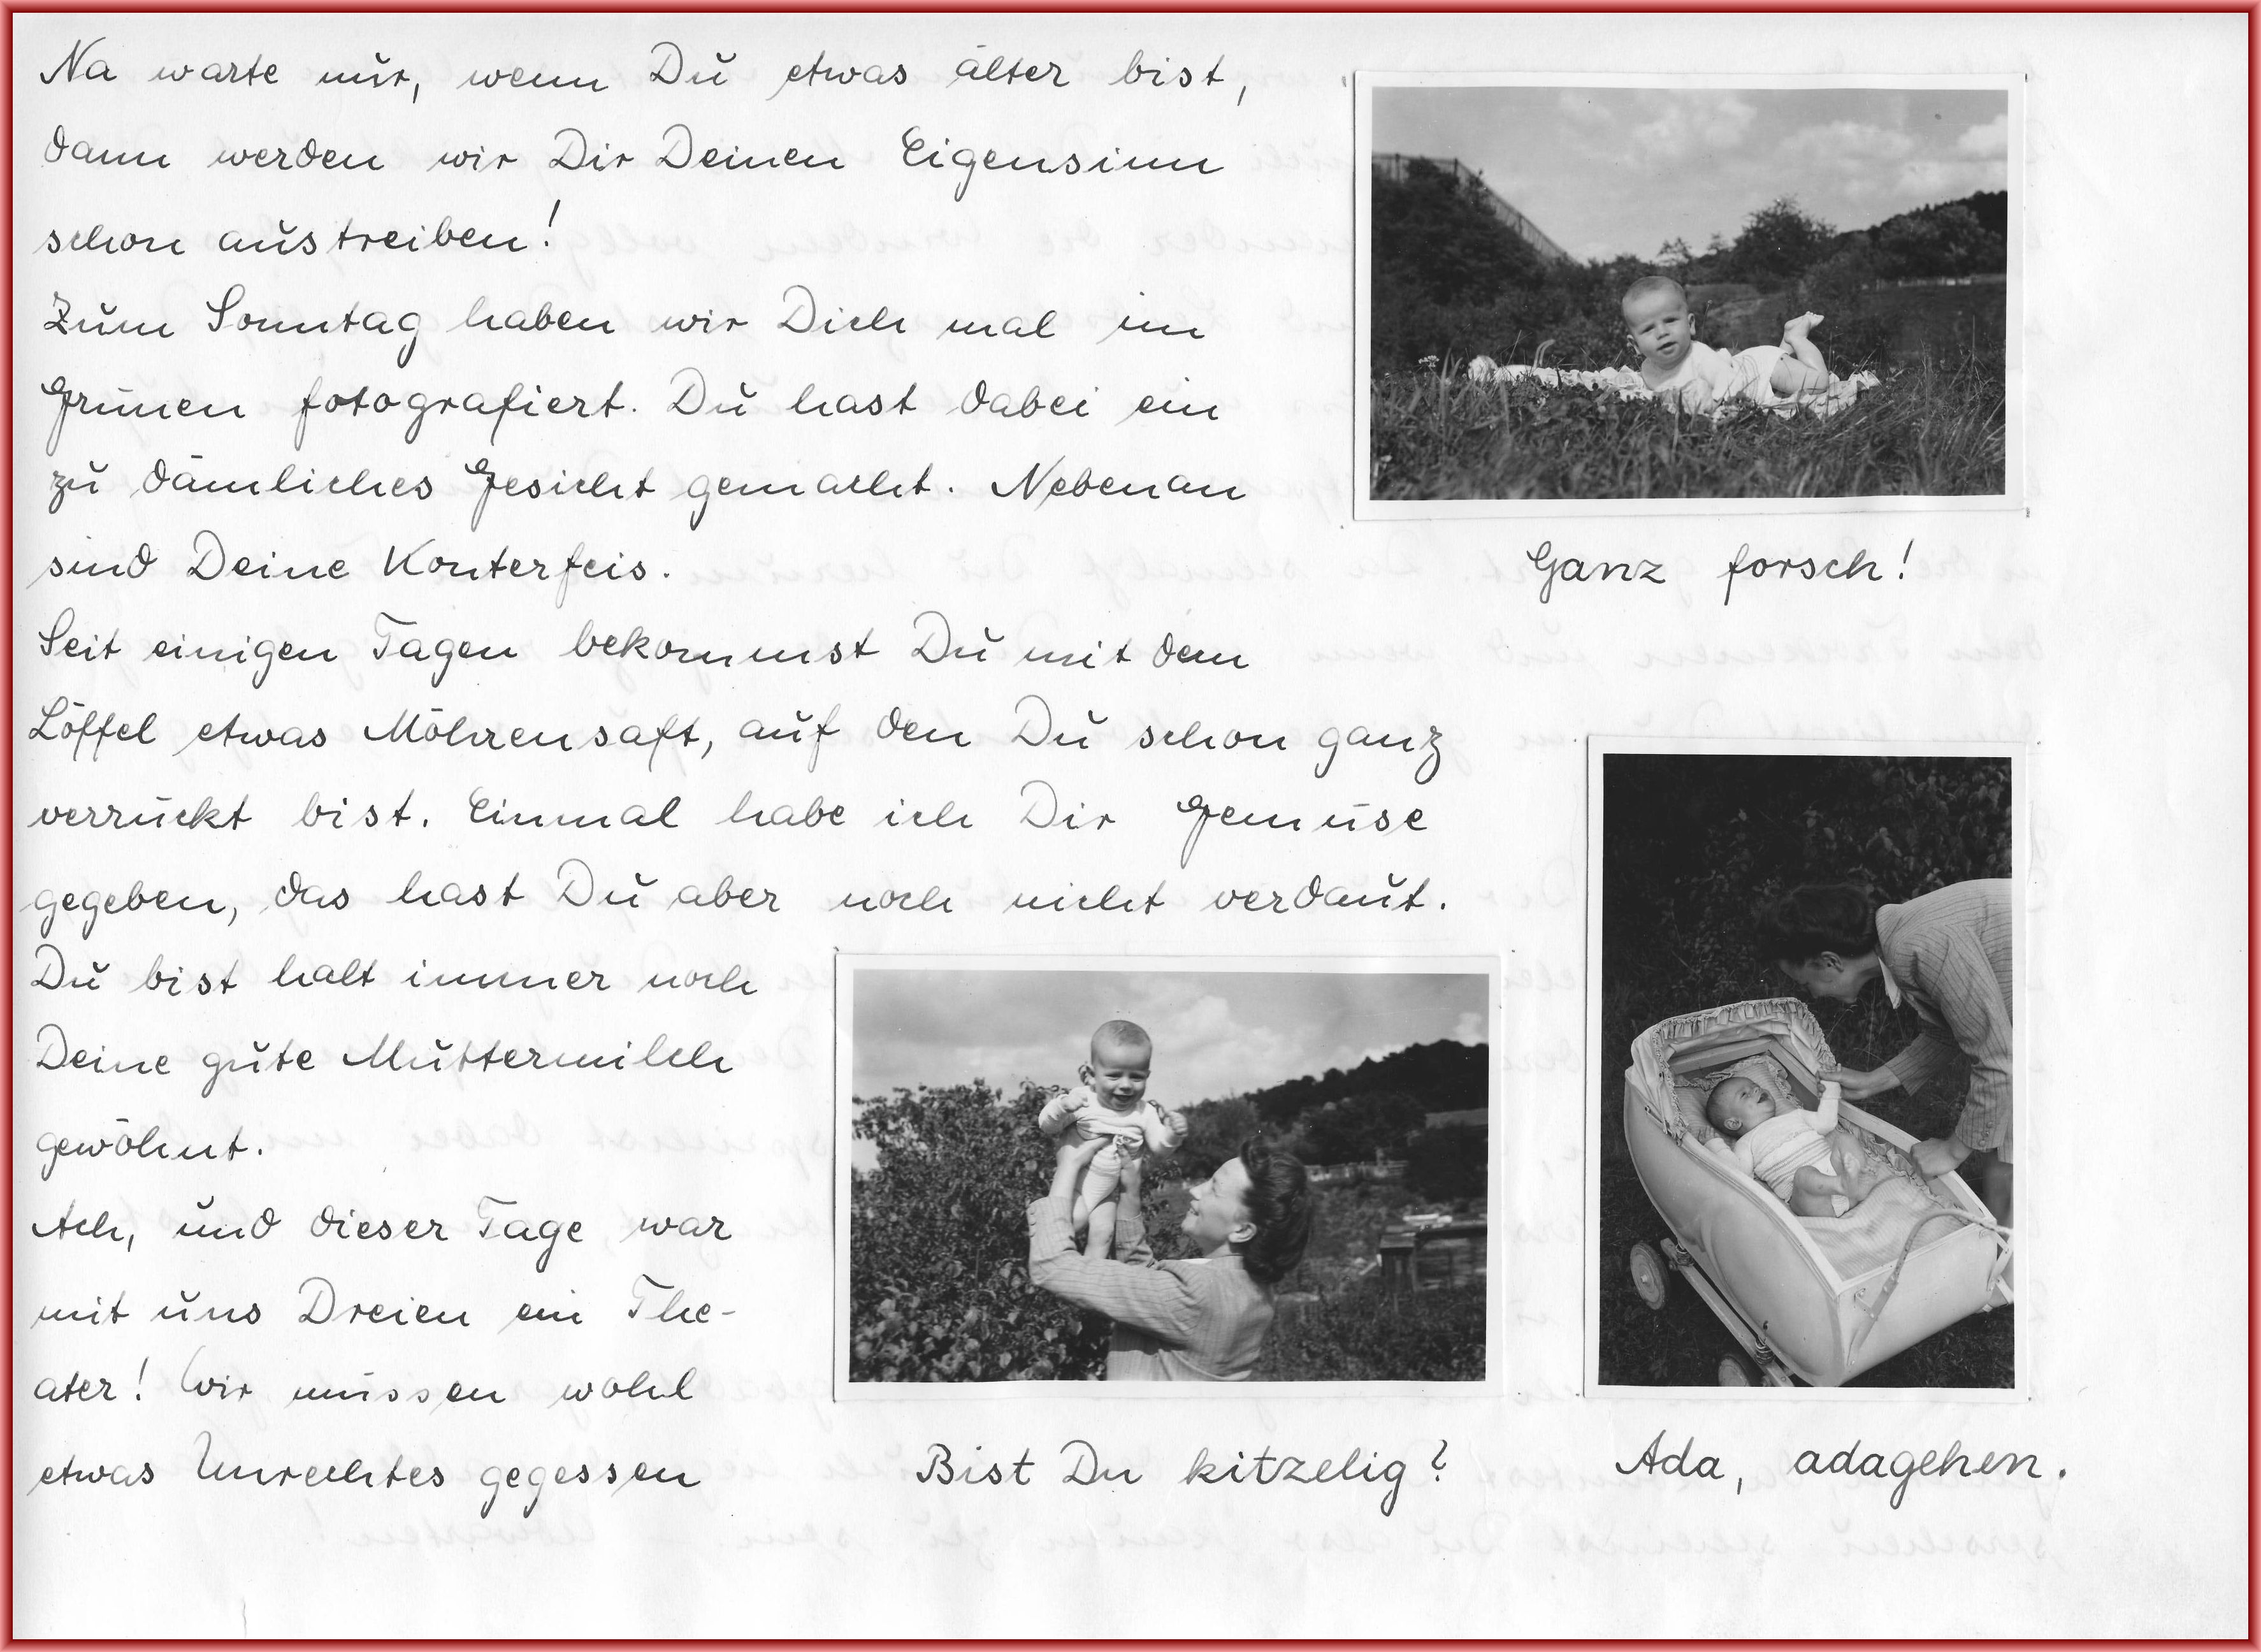 Na warte nur, wenn Du etwas älter bist,
dann werden wir Dir Deinen Eigensinn
schon austreiben!
Zum Sonntag haben wir Dich mal im
Grünen fotografiert. Du hast dabei ein
zu dämliches Gesicht gemacht. Nebenan
sind Deine Konterfeis.
Seit einigen Tagen bekommst Du mit dem
Löffel etwas Möhrensaft, auf den Du schon ganz
verrückt bist. Einmal habe ich Dir Gemüse
gegeben, das hast Du aber noch nicht verdaut.
Du bist halt immer noch
Deine gute Muttermilch
gewöhnt.
Ach, und dieser Tage war
mit uns Dreien ein The-
ater! Wir müssen wohl
etwas Unrechtes gegessen
Ganz forsch!
Bist Du kitzelig?
Ada, adagehen.